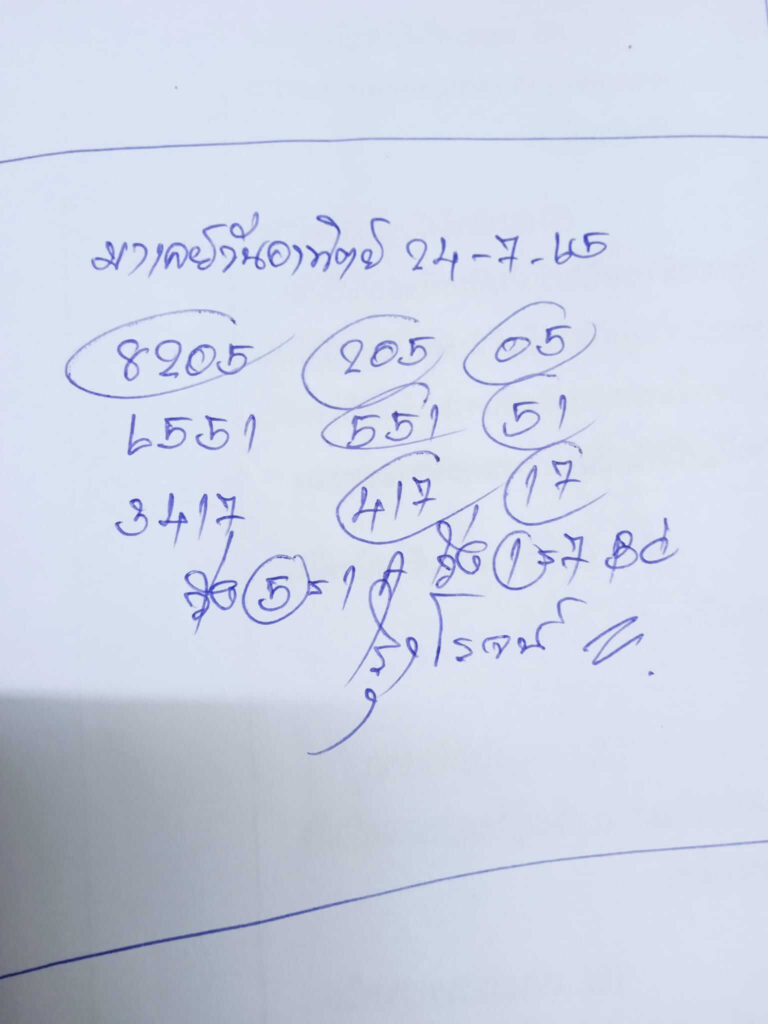 มาเลย์วันอาทิตย์ 24-7-65
8205 205 05
6551 551 51
3417 417 17
วิ่ง 5=1 วิ่ง 1=7
รุ่งโรจน์